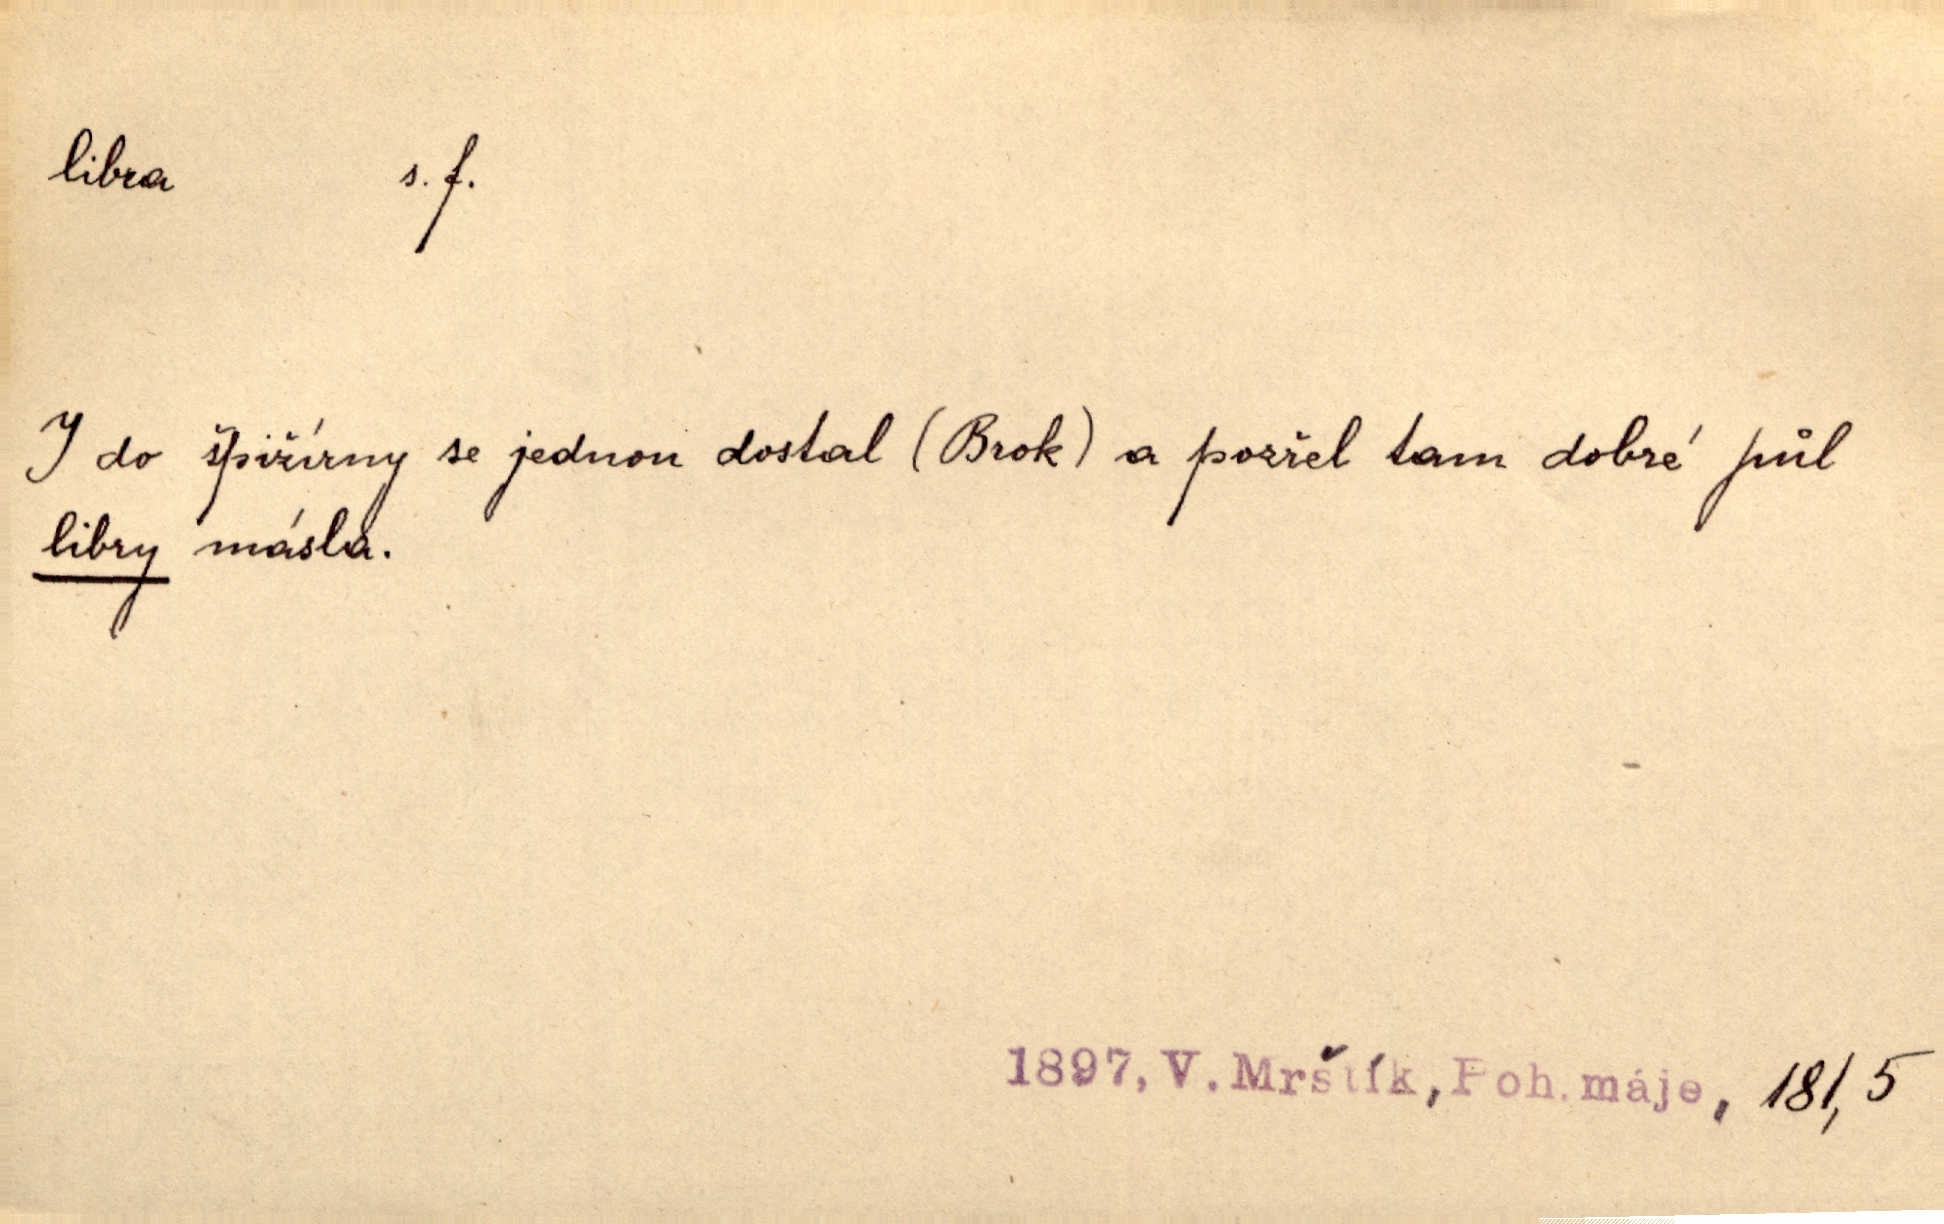 libra s. f.
I do špižírny se jednou dostal (Brok) a pozřel tam dobré půl
libry másla.
1897, V. Mrštík, Poh. máje, 181, 5